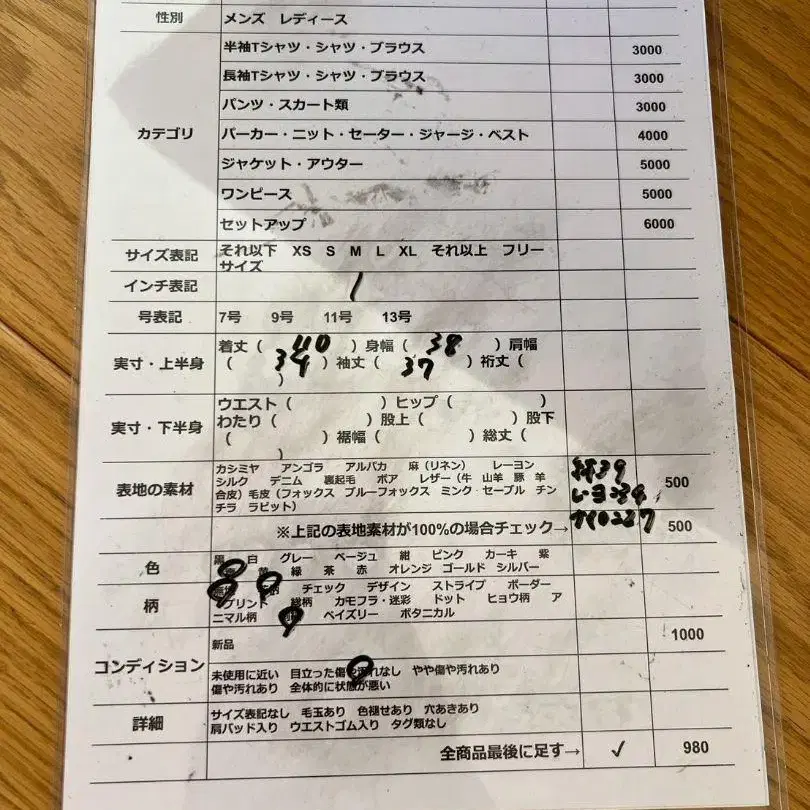 性別 メンズ レディース
カテゴリ
半袖Tシャツ・シャツ・ブラウス 3000
長袖Tシャツ・シャツ・ブラウス 3000
パンツ・スカート類 3000
パーカー・ニット・セーター・ジャージ・ベスト 4000
ジャケット・アウター 5000
ワンピース 5000
セットアップ 6000
サイズ表記 それ以下 XS S M L XL それ以上 フリー
サイズ
インチ表記
号表記 7号 9号 11号 13号
実寸・上半身 着丈( 40 )身幅( 38 )肩幅
( 34 )袖丈( 37 )裄丈(
)
実寸・下半身 ウエスト( )ヒップ( )
わたり( )股上( )股下
( )裾幅( )総丈(
)
表地の素材 カシミヤ アンゴラ アルパカ 麻(リネン) レーヨン
シルク デニム 裏起毛 ボア レザー(牛 山羊 豚 羊
合皮)毛皮(フォックス ブルーフォックス ミンク・セーブル チン
チラ ラビット) 500
39
※上記の表地素材が100%の場合チェック→ 500
色 黒 白 グレー ベージュ 紺 ピンク カーキ 紫
緑 茶 赤 オレンジ ゴールド シルバー
柄 チェック デザイン ストライプ ボーダー
プリント 総柄 カモフラ・迷彩 ドット ヒョウ柄 ア
ニマル柄 ペイズリー ボタニカル
コンディション 新品 1000
未使用に近い 目立った傷や汚れなし やや傷や汚れあり
傷や汚れあり 全体的に状態が悪い
詳細 サイズ表記なし 毛玉あり 色褪せあり 穴あきあり
肩パッド入り ウエストゴム入り タグ類なし
全商品最後に足す→ ✓ 980